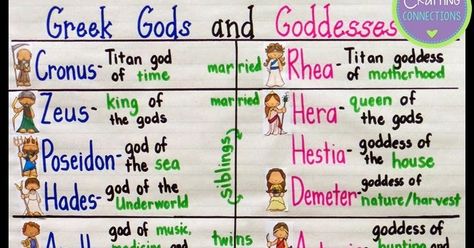 Greek Gods and Goddesses
CONNECTIONS
Cronus- Titan god of time
married
Rhea- Titan goddess of motherhood
Zeus- king of the gods
married
Hera- queen of the gods
Poseidon- god of the sea
siblings
Hestia- goddess of the house
Hades- god of the Underworld
Demeter- goddess of nature/harvest
god of music,
twins
goddess of